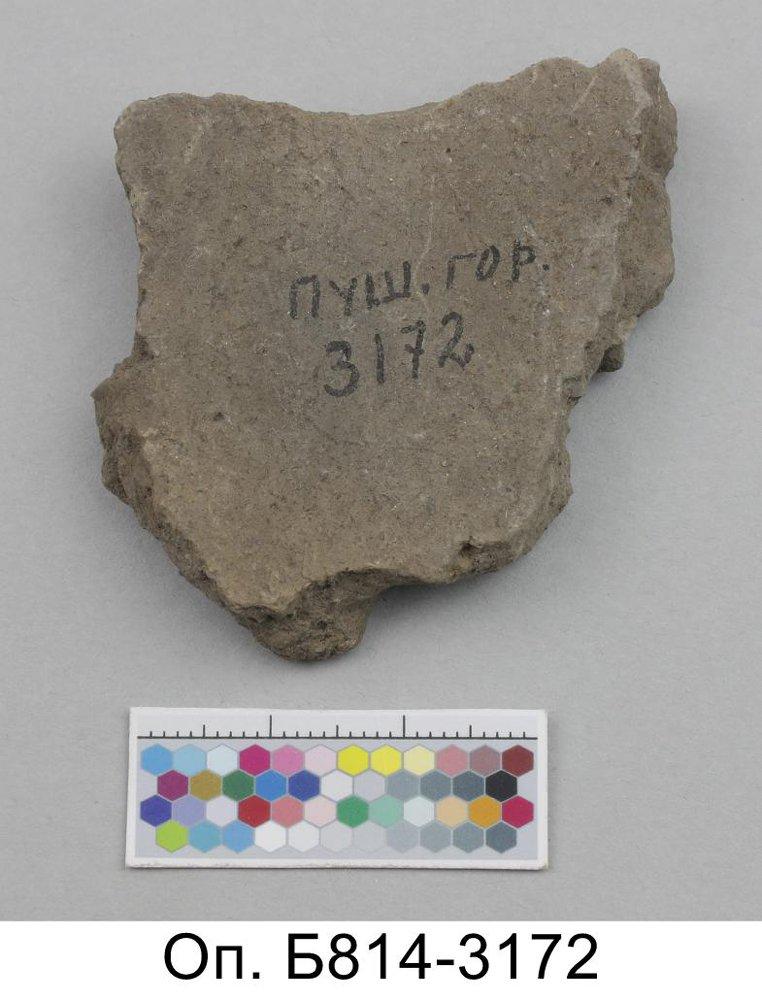 ПУШ. ГОР.
3172
Оп. Б814-3172